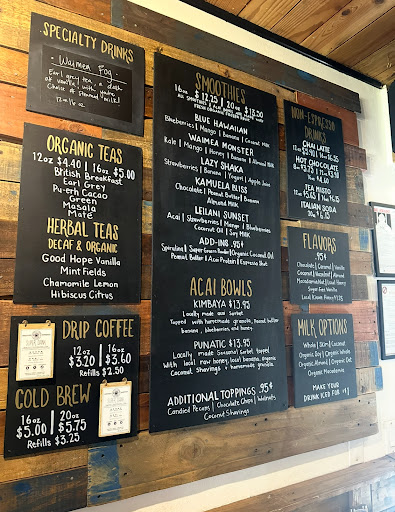 SPECIALTY DRINKS
Waimea Fog
Earl grey tea, a dash
of vanilla, with your
Choice of Steamed Milk!
12oz 16oz
ORGANIC TEAS
12oz $4.40 | 16oz $5.00
British Breakfast
Earl Grey
Pu-erh Cacao
Green
Masala
Maté
HERBAL TEAS
DECAF & ORGANIC
Good Hope Vanilla
Mint Fields
Chamomile Lemon
Hibiscus Citrus
DRIP COFFEE
12oz | 16oz
$3.20 | $3.60
Refills $2.50
COLD BREW
16oz | 20oz
$5.00 | $5.75
Refills $3.25
SMOOTHIES
16oz $12.25 | 20oz $13.50
BLUE HAWAIIAN
Blueberries | Mango | Banana | Coconut Milk
WAIMEA MONSTER
Kale | Mango | Honey | Banana | Almond Milk
LAZY SHAKA
Strawberries | Banana | Yogurt | Apple Juice
KAMUELA BLISS
Chocolate | Peanut Butter | Banana
Almond Milk
LEILANI SUNSET
Acai | Strawberries | Mango | Blueberries
Coconut Oil | Soy Milk
ADD-INS .95¢
Spirulina | Super Greens Powder | Organic Coconut Oil
Peanut Butter | Acai Protein | Espresso Shot
ACAI BOWLS
KIMBAYA $13.95
Locally made acai Sorbet
Topped with homemade granola, Peanut butter
banana, blueberries, and honey.
PUNATIC $13.95
Locally made Soursop Sorbet topped
With local raw honey, local banana, Organic
Coconut Shavings + homemade granola.
ADDITIONAL TOPPINGS .95¢
Candied Pecans | Chocolate Chips | Walnuts
Coconut Shavings
NON-ESPRESSO
DRINKS
CHAI LATTE
HOT CHOCOLATE
TEA MISTO
ITALIAN SODA
FLAVORS
Chocolate | Caramel | Vanilla
Coconut | Hazelnut | Almond
Macadamia Nut | Local Honey
Sugar Free Vanilla
MILK OPTIONS
Whole | Skim | Coconut
Organic Soy | Organic Whole
Organic Almond | Organic Oat
Organic Macadamia
MAKE YOUR
DRINK ICED FOR +$1